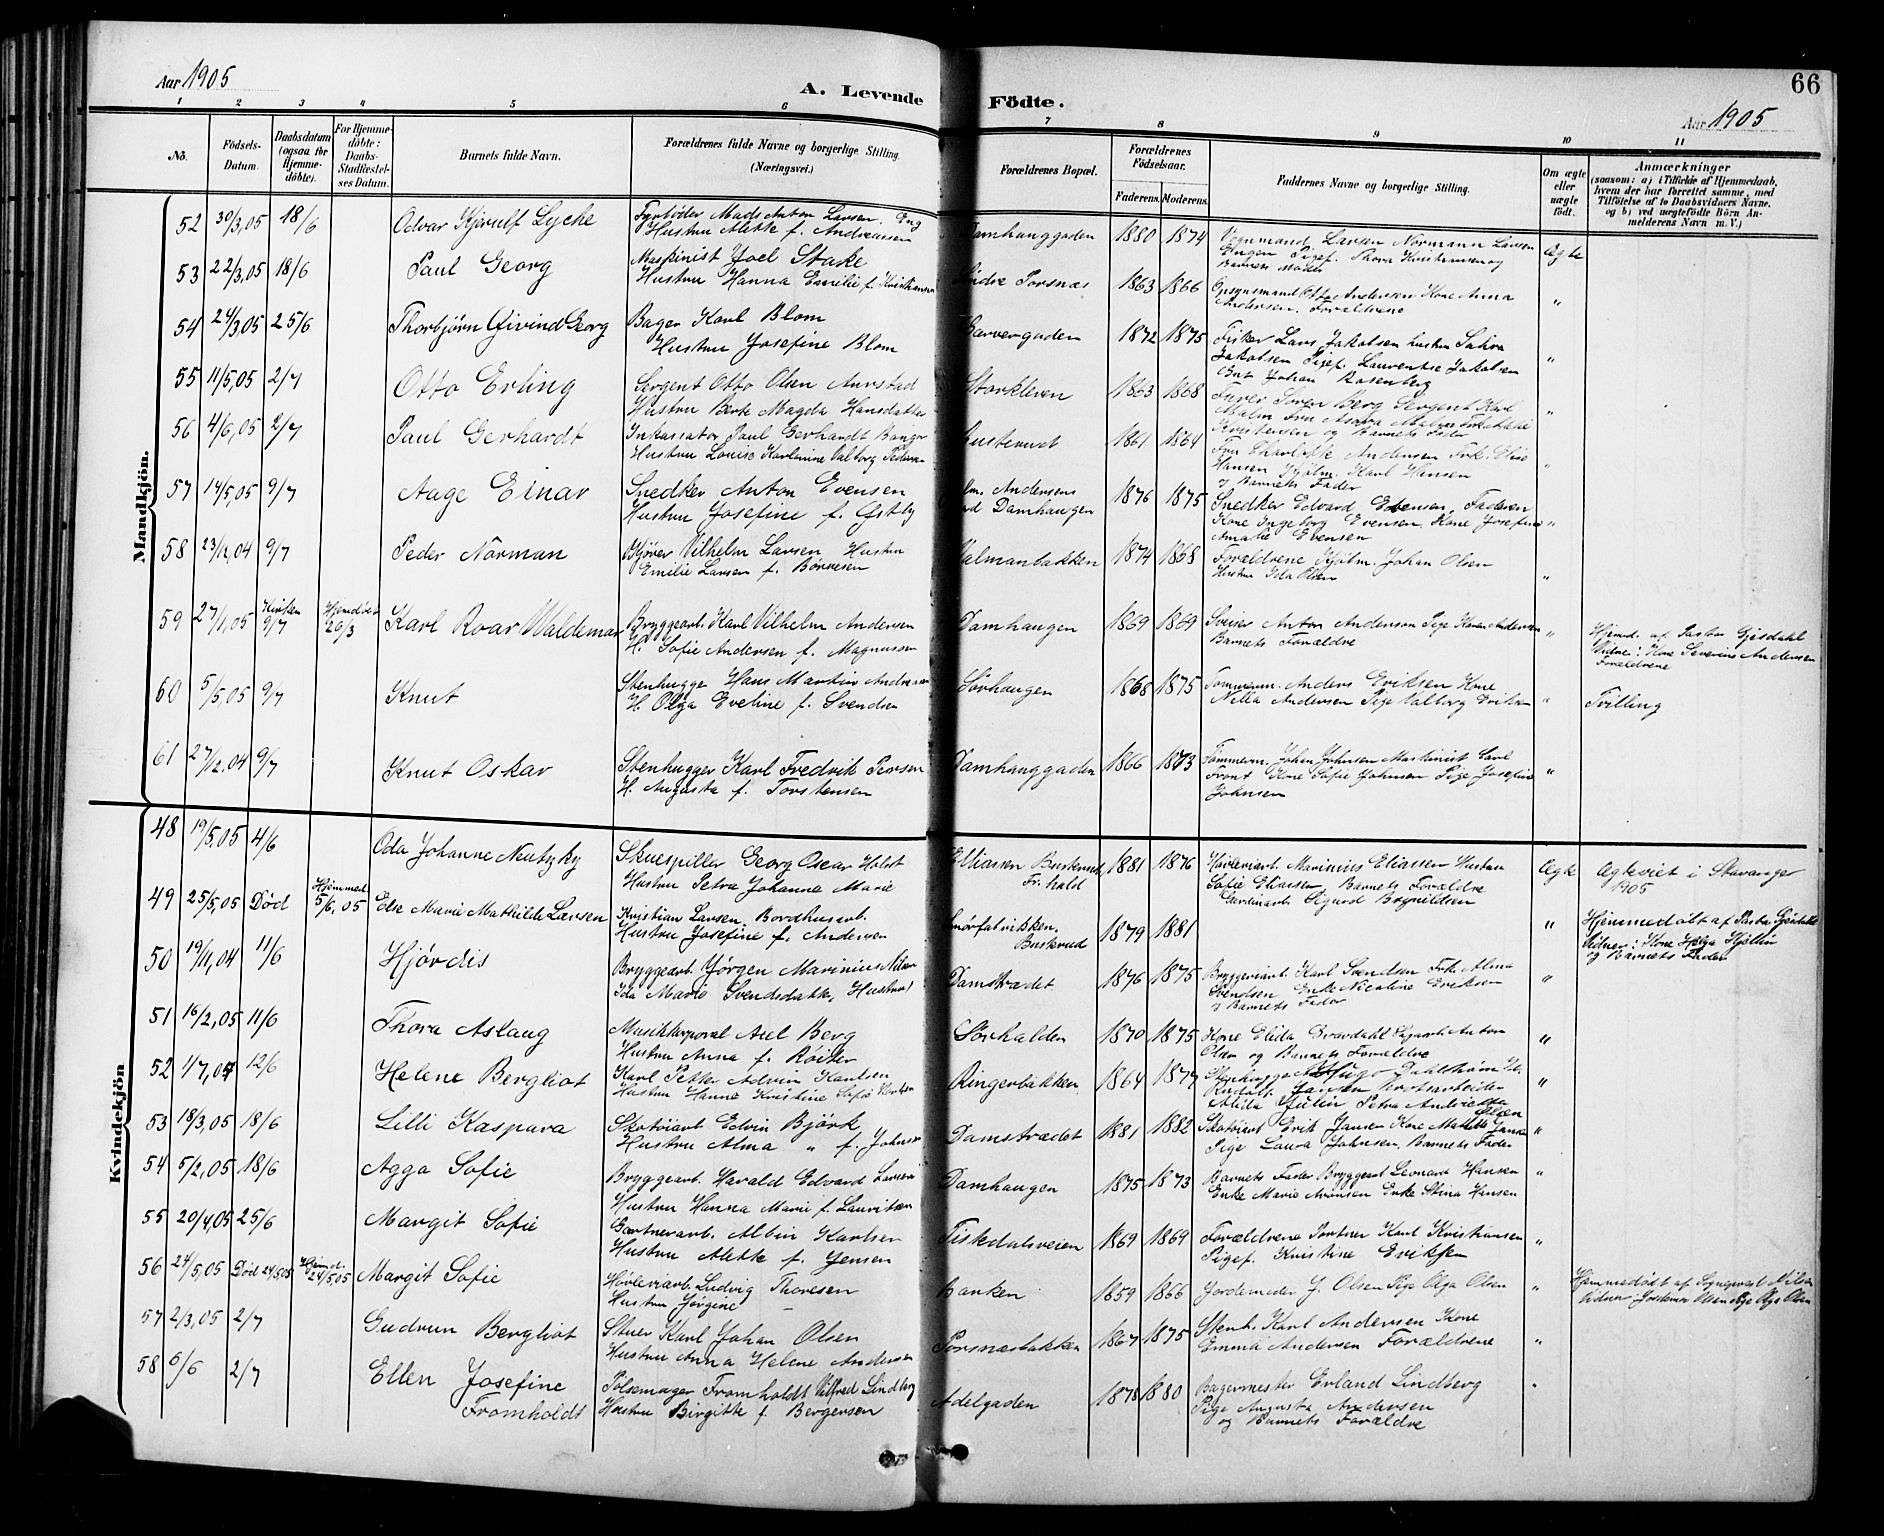 Aar 1905
A. Levende Födte.
66
Aar 1905
1 2 3 4 5 6 7 8 9 10 11
No.
Födsels-Datum.
Daabsdatum (ogsaa for Hjemme-döbte).
For Hjemme-döbte: Daabs-Stadfæstel-ses Datum.
Barnets fulde Navn.
Forældrenes fulde Navne og borgerlige Stilling. (Næringsvei.)
Forældrenes Bopæl.
Forældrenes Födselsaar.
Faderens. Moderens.
Faddernes Navne og borgerlige Stilling.
Om ægte eller uægte födt.
Anmærkninger
(saasom: a) i Tilfælde af Hjemmedaab, hvem der har forrettet samme, med Tilföielse af to Daabsvidners Navne. og b) ved uægtefödte Börn An-melderens Navn m. V.)
Mandkjön.
52 30/3,05 18/6 Odvar Kjerulf Lyche Fyrbøder Mads Anton Larsen Eng Hustru Alette f. Andreassen Damhauggaden 1880 1874 Larsen Normann Larsen Engen Pigef. Thora Kristiansen og Barnets Moder Ægte
53 22/3,05 18/6 Paul Georg Maskinist Joel Stake Hustru Hanna Emilie f. Kristiansen Indre Torsnæs 1863 1866 Opsynsmand Otto Andersen Kone Anna Andersen. Forældrene "
54 24/3,05 25/6 Thorbjørn Øivind Georg Bager Karl Blom Hustru Josefine Blom Garvergaden 1872 1875 Fisker Lars Jakobsen hustru Jakobsen Pigef. Laurentse Jakobsen Johan Rosenberg "
55 11/5,05 2/7 Otto Erling Sergent Otto Olsen Aurstad Hustru Berte Magda Hansdatter Storkleven 1863 1868 Furer Søren Berg Sergent Karl Malm Fru Malm Kristensen og Barnets Fader "
56 4/6,05 2/7 Paul Gerhardt Inkassator Paul Gerhardt Bangor Hustru Louise Karlenine Valborg Pedersen 1861 1864 Fru Charlotte Andersen Frk. Elise Hansen Karl Hansen og Barnets Fader "
57 14/5,05 9/7 Aage Einar Snedker Anton Evensen Hustru Josefine f. Østby Andersens Damhaugen 1876 1875 Snedker Edvard Evensen, Faderen Kone Ingeborg Evensen, Kone Josefine Amalie Evensen "
58 23/12,04 9/7 Peder Norman Kjører Vilhelm Larsen Hustru Emilie Larsen f. Børresen Valmanbakken 1874 1868 Forældrene Kjølm. Johan Olsen Hustru Ida Olsen "
59 27/1,05 Kirken 9/7 Hjemdøbt 26/3 Karl Roar Waldemar Bryggearb. Karl Vilhelm Andersen H. Sofie Andersen f. Magnussen Damhaugen 1869 1869 Sveiser Anton Andersen Pige Karen Andersen Barnets Forældre " Hjemd. af Pastor Gjesdahl Vidne: Kone Severine Andersen Forældrene
60 5/5,05 9/7 Knut Stenhugge Hans Martin Andreassen H. Olga Eveline f. Svendsen Sørhaugen 1868 1875 Tommerm. Anders Eriksen Kone Nilla Andersen Pige Valborg Eriksen " Tvilling
61 27/12.04 9/7 Knut Oskar Stenhugger Karl Fredrik Persen H. Augusta f. Torstensen Damhauggaden 1866 1873 Tømmerm. Johan Johnsen Maskinist Carl Front Kone Sofie Johnsen Pige Josefine Johnsen "
Kvindekjön
48 19/5,05 4/6 Oda Johanne Neutzky Skuespiller Georg Oscar Holst Hustru Petra Johanne Marie Elliassen Buskrud Fr. hald 1881 1876 Høvleriarb. Marinius Eliassen Hustru Sofie Eliassen, Barnets Forældre Sigurd Brynildsen Ægte Ægteviet i Stavanger 1905
49 25/5,05 Død Hjemmed. 5/6,05 Else Marie Mathilde Larsen Kristian Larsen, Bordhusarb. Hustru Josefine f. Andersen Buskrud 1879 1881 " Hjemmedøbt af Pastor Gjesdahl Vidner: Kone Helga Kjellin og Barnets Fader
50 19/11,04 11/6 Hjørdis Bryggearb. Jørgen Marinius Nilsen Ida Marie Svendsdatter, Hustru Damstrædet 1876 1875 Bryggeriarb. Karl Svendsen Frk. Alma Svendsen Enke Nicoline Eriksen og Barnets Fader "
51 16/2,05 11/6 Thora Aslaug Musikkorporal Axel Berg Hustru Anna f. Røiter Sørhalden 1870 1875 Kone Elida Anton Olsen og Barnets Forældre "
52 1/7,04 12/6 Helene Bergliot Karl Petter Advin Karlsen Hustru Hanne Kristine Sofie Karlsen Ringerbakken 1864 1877 Stenhugger Hugo Dahlstrøm Rudolf Jansen Alida Julin Petra Andrietta Olsen "
53 18/3,05 18/6 Lilli Kaspara Skotøiarb. Edvin Bjørk Hustru Alma " f. Johnsen Damstrædet 1881 1882 Skotøiarb. Erik Jansen Kone Jansen Pige Laura Johnsen, Barnets Fader "
54 5/2,05 18/6 Agga Sofie Bryggearb. Harald Edvard Larsen Hustru Hanna Marie f. Lauritsen Damhaugen 1875 1873 Barnets Fader Bryggearb. Leonard Hansen Enke Marie Aronsen Enke Stina Hansen "
55 20/4,05 25/6 Margit Sofie Gartnerarb. Albin Karlsen Hustru Alette f. Jensen Tiskdalsveien 1869 1869 Forældrene Portner Karl Kristiansen Pigef. Kristine Eriksen "
56 24/5,05 Død 24/5,05 Hjemd. 24/5,05 Margit Sofie Høvleriarb. Ludvig Thoresen Hustru Jørgine — Banken 1859 1866 Jordemoder J. Olsen Pige Olga Olsen " Hjemmedøbt af Sognepræst Nilsen Vidner Jordemor Olsen Pige Olga Olsen
57 2/3,05 2/7 Gudrun Bergliot Stuer Karl Johan Olsen Hustru Anna Helene Andersen Torsnæsbakken 1867 1875 Stenh. Karl Andersen Kone Emma Andersen Forældrene "
58 6/6 2/7 Ellen Josefine Fromholdt Pølsemager Fromholdt Vilfred Lindberg Hustru Birgitte f. Bergersen Adelgaden 1878 1880 Bagermester Erland Lindberg Pige Augusta Andersen og Barnets Forældre "